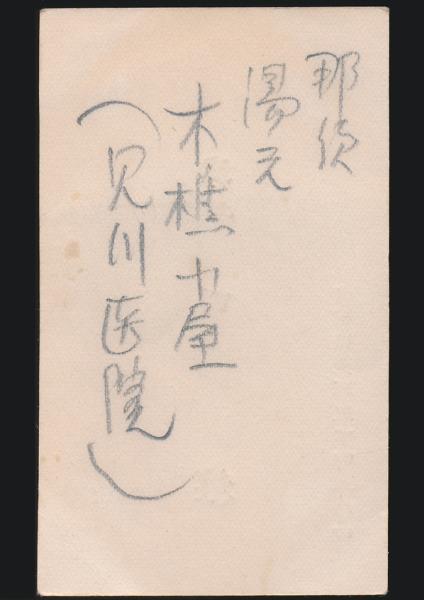 那須
湯元
木樵小屋
（見川医院）